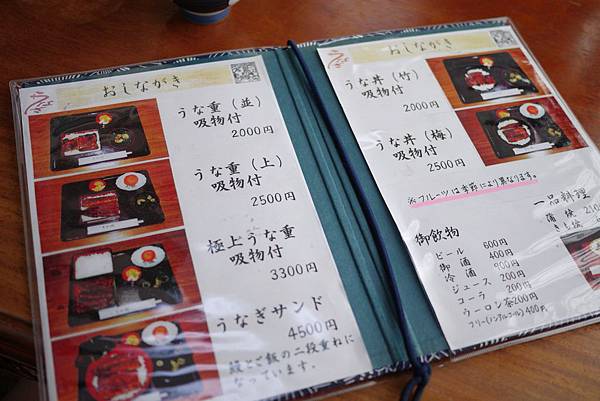 おしながき
うな重（並）
吸物付
2000円
うな重（上）
吸物付
2500円
極上うな重
吸物付
3300円
うなぎサンド
4500円
鰻とご飯の二段重ねに
なっています。
おしながき
うな丼（竹）
吸物付
2000円
うな丼（梅）
吸物付
2500円
※フルーツは季節により異なります。
御飲物
ビール 600円
御酒 400円
冷酒 900円
ジュース 200円
コーラ 200円
ウーロン茶200円
フリー(ノンアルコール) 400円
一品料理
蒲焼
きも焼